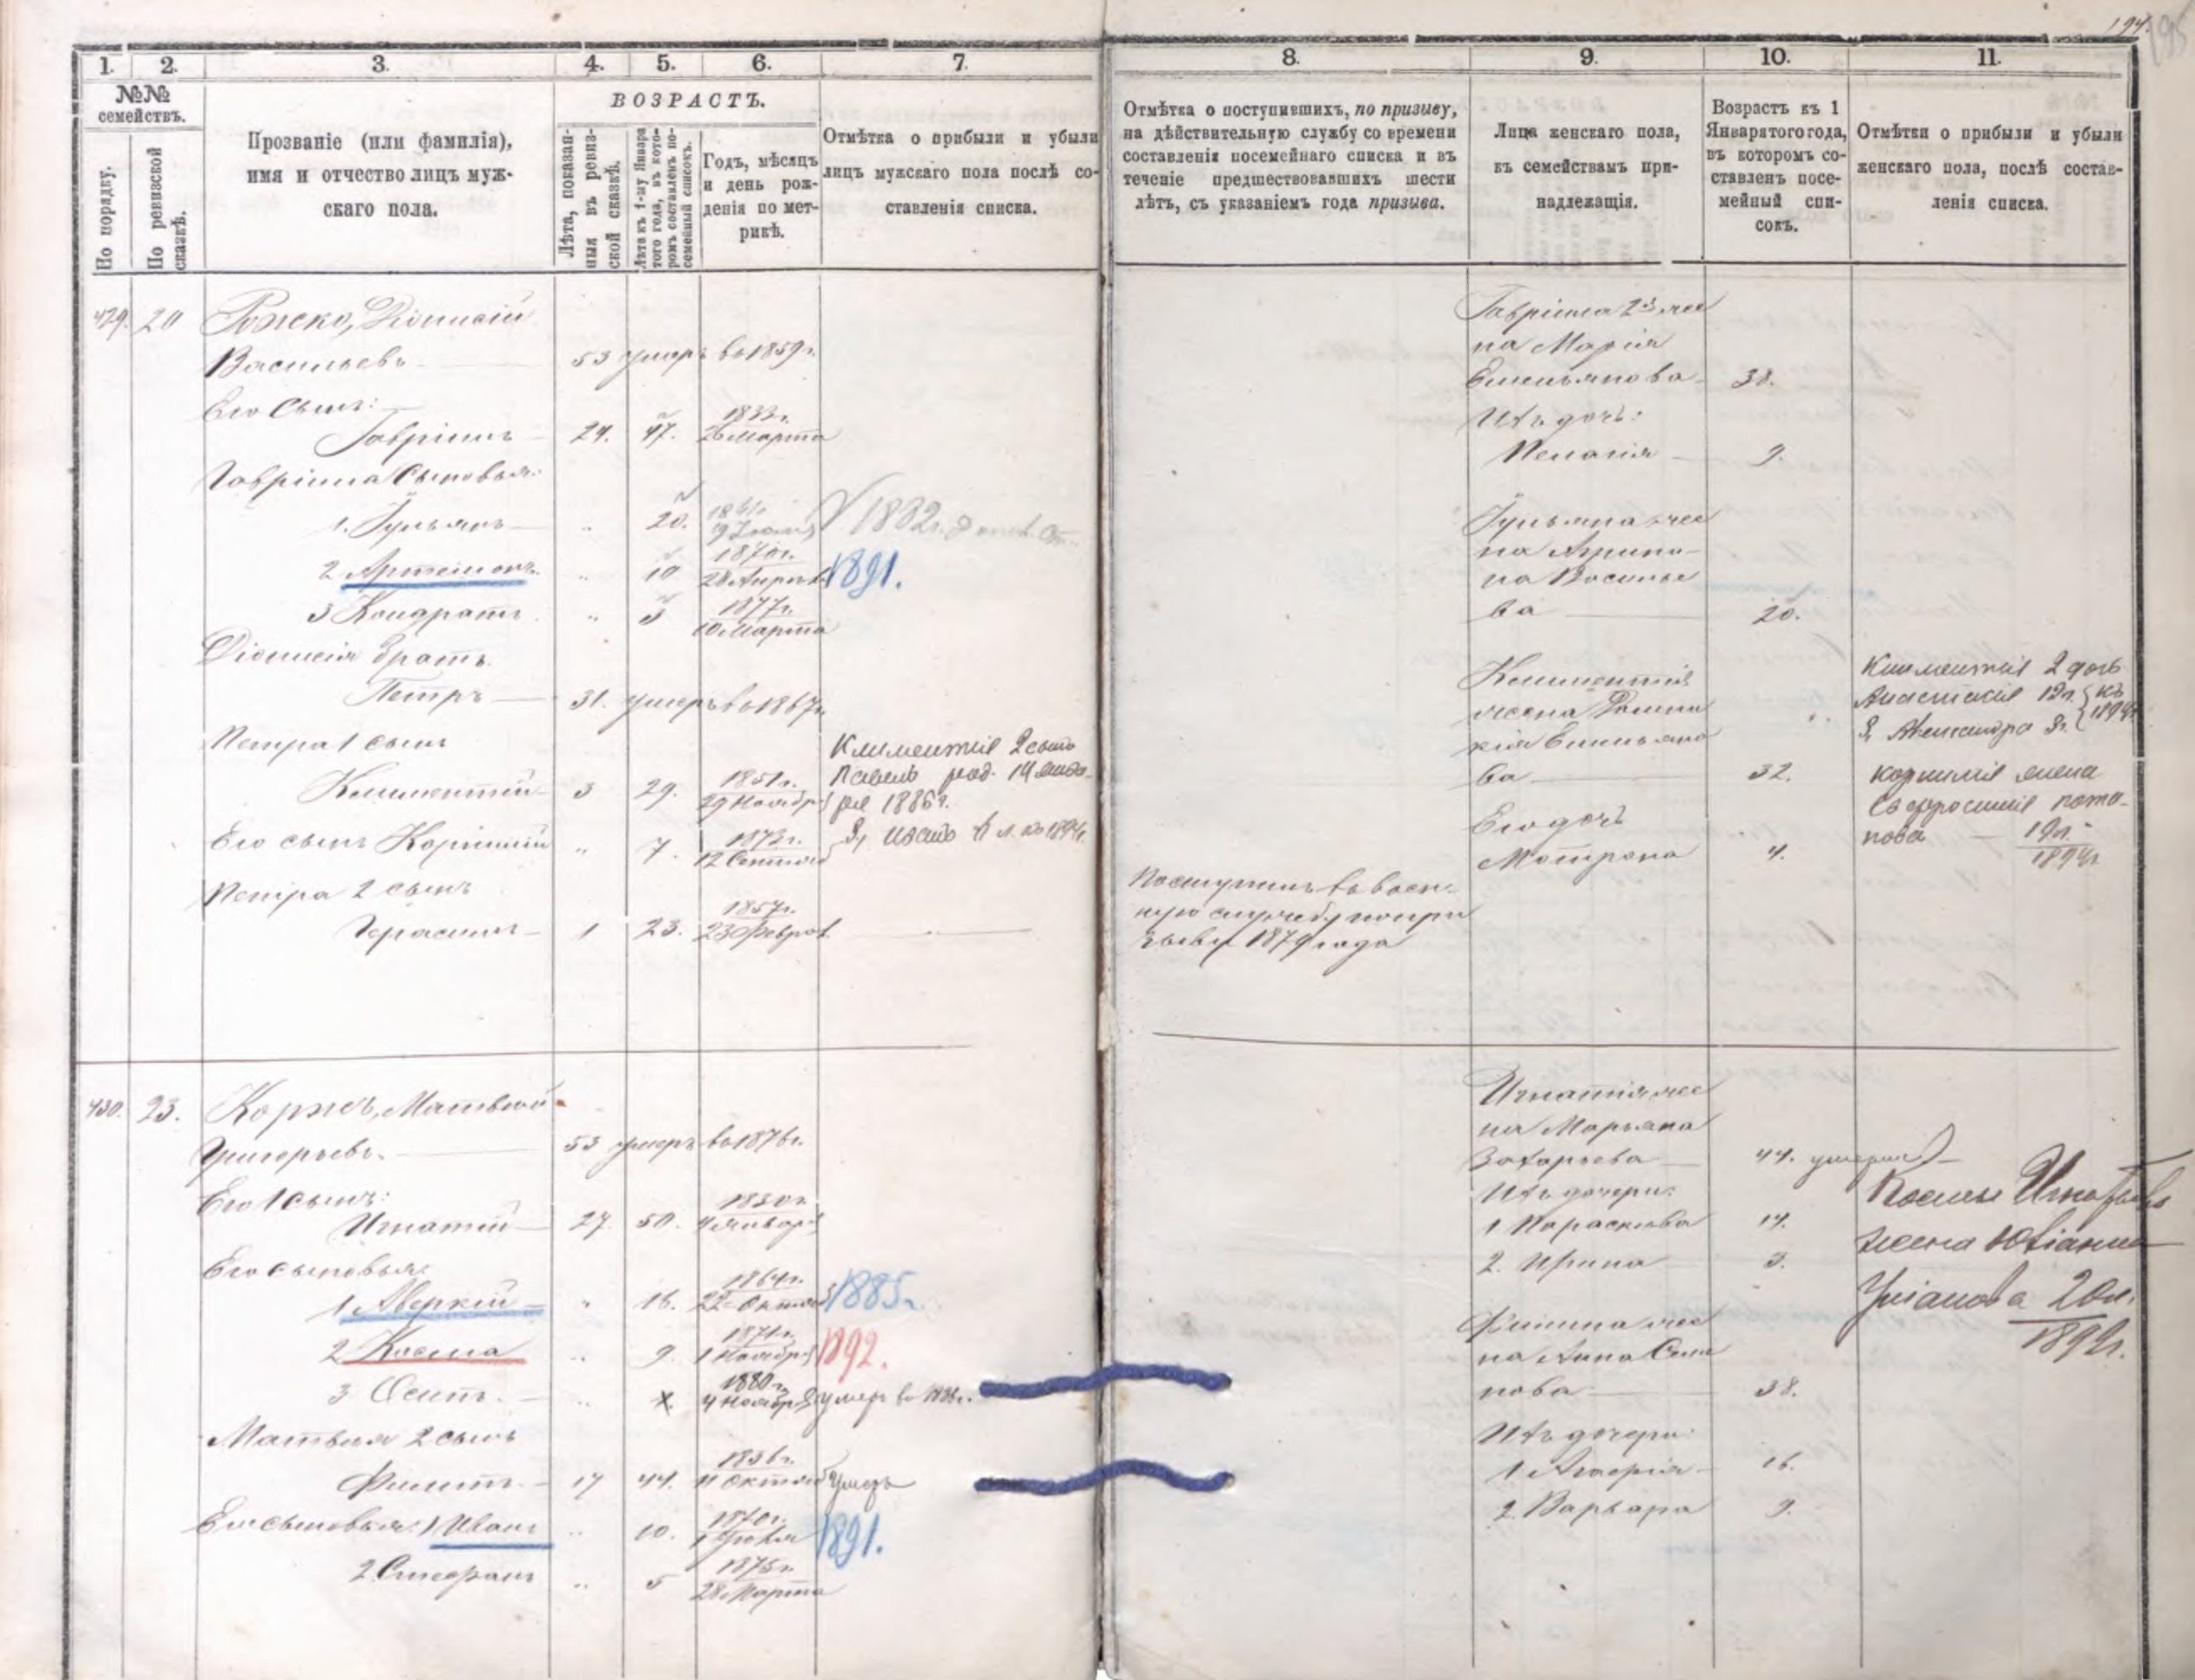 194.
195
1.
2.
3.
4.
5.
6.
7.
№№
семействъ.
По порядку.
По ревизской сказкѣ.
Прозваніе (или фамилія),
имя и отчество лицъ муж-
скаго пола.
ВОЗРАСТЪ.
Лѣта, показан-
ныя въ ревиз-
ской сказкѣ.
Лѣта къ 1-му Января
того года, въ кото-
ромъ составленъ по-
семейный списокъ.
Годъ, мѣсяцъ
и день рож-
денія по мет-
рикѣ.
Отмѣтка о прибыли и убыли
лицъ мужскаго пола послѣ со-
ставленія списка.
429. 20 Рожко, Діонисій
Васильевъ 53 умеръ въ 1859 г.
Его Сынъ:
Гавріилъ 24. 47. 1833 г. 26 Марта
Гавріила Сыновья:
1. Гульянъ „ 20. 1861 г. 19 V 1882 г.
2 Артемонъ „ 10 1870 г. 28 Апрѣл. 1891.
3 Кондратъ „ 3 1877 г. 10 Марта
Діонисія братъ
Петръ 31. умеръ въ 1867 г.
Петра 1 сынъ
Климентій 3 29. 1851 г. 29 Ноябр.
Климентія 2 сынъ
Павелъ род. 14 янва-
ря 1886 г.
Его сынъ Корнилій „ 7. 1873 г. 12 Сентяб.
3, 1894 г.
Петра 2 сынъ
Герасимъ 1 23. 1857 г. 23 Феврал.
430. 23. Коржъ, Матвѣй
Григорьевъ 53 умеръ въ 1876 г.
Его 1 сынъ:
Игнатій 27 50. 1830 г. 4 Января
Его сыновья:
1 Аверкій „ 16. 1864 г. 22 Октяб. 1885 г.
2 Косма „ 9. 1871 г. 1 Ноябр. 1892.
3 Осипъ. „ 1880 г. 4 Ноябр. умеръ въ
Матвѣя 2 сынъ
Филипъ 17 44. 1836 г. 11 Октяб. Умеръ
Его сыновья: 1 Иванъ „ 10. 1870 г. 1891.
2 Стефанъ „ 5 1875 г. 28 Марта
8.
9.
10.
11.
Отмѣтка о поступившихъ, по призыву,
на дѣйствительную службу со времени
составленія посемейнаго списка и въ
теченіе предшествовавшихъ шести
лѣтъ, съ указаніемъ года призыва.
Лица женскаго пола,
къ семействамъ при-
надлежащія.
Возрастъ къ 1
Января того года,
въ которомъ со-
ставленъ посе-
мейный спи-
сокъ.
Отмѣтки о прибыли и убыли
женскаго пола, послѣ состав-
ленія списка.
Гавріила 2я же
на Марія
Емельянова 38.
Ихъ дочь:
Пелагія 9.
Гульяна же
на Агрипи-
на Василье
ва 20.
Климентія
жена
кія Емельяно
ва 32.
Его дочь
Мотрона 4.
Климентія 2 дочь
Анастасія 12 л. къ
3, Александра 3 г. 1894 г.
Корнилія жена
Евфросинія Пота-
пова 19 л.
1894 г.
Поступилъ въ воен-
ную службу по при
зыву 1879 года
Игнатія же
на Марьяна
Захарьева 44. умерла
Ихъ дочери:
1 Параскева 14.
2. Ирина 3.
Филипа же
на Анна Семе
нова 38.
Ихъ дочери:
1 16.
2. Варвара 9.
Космы Игнатьева
жена Юліанна
20 л.
189 г.